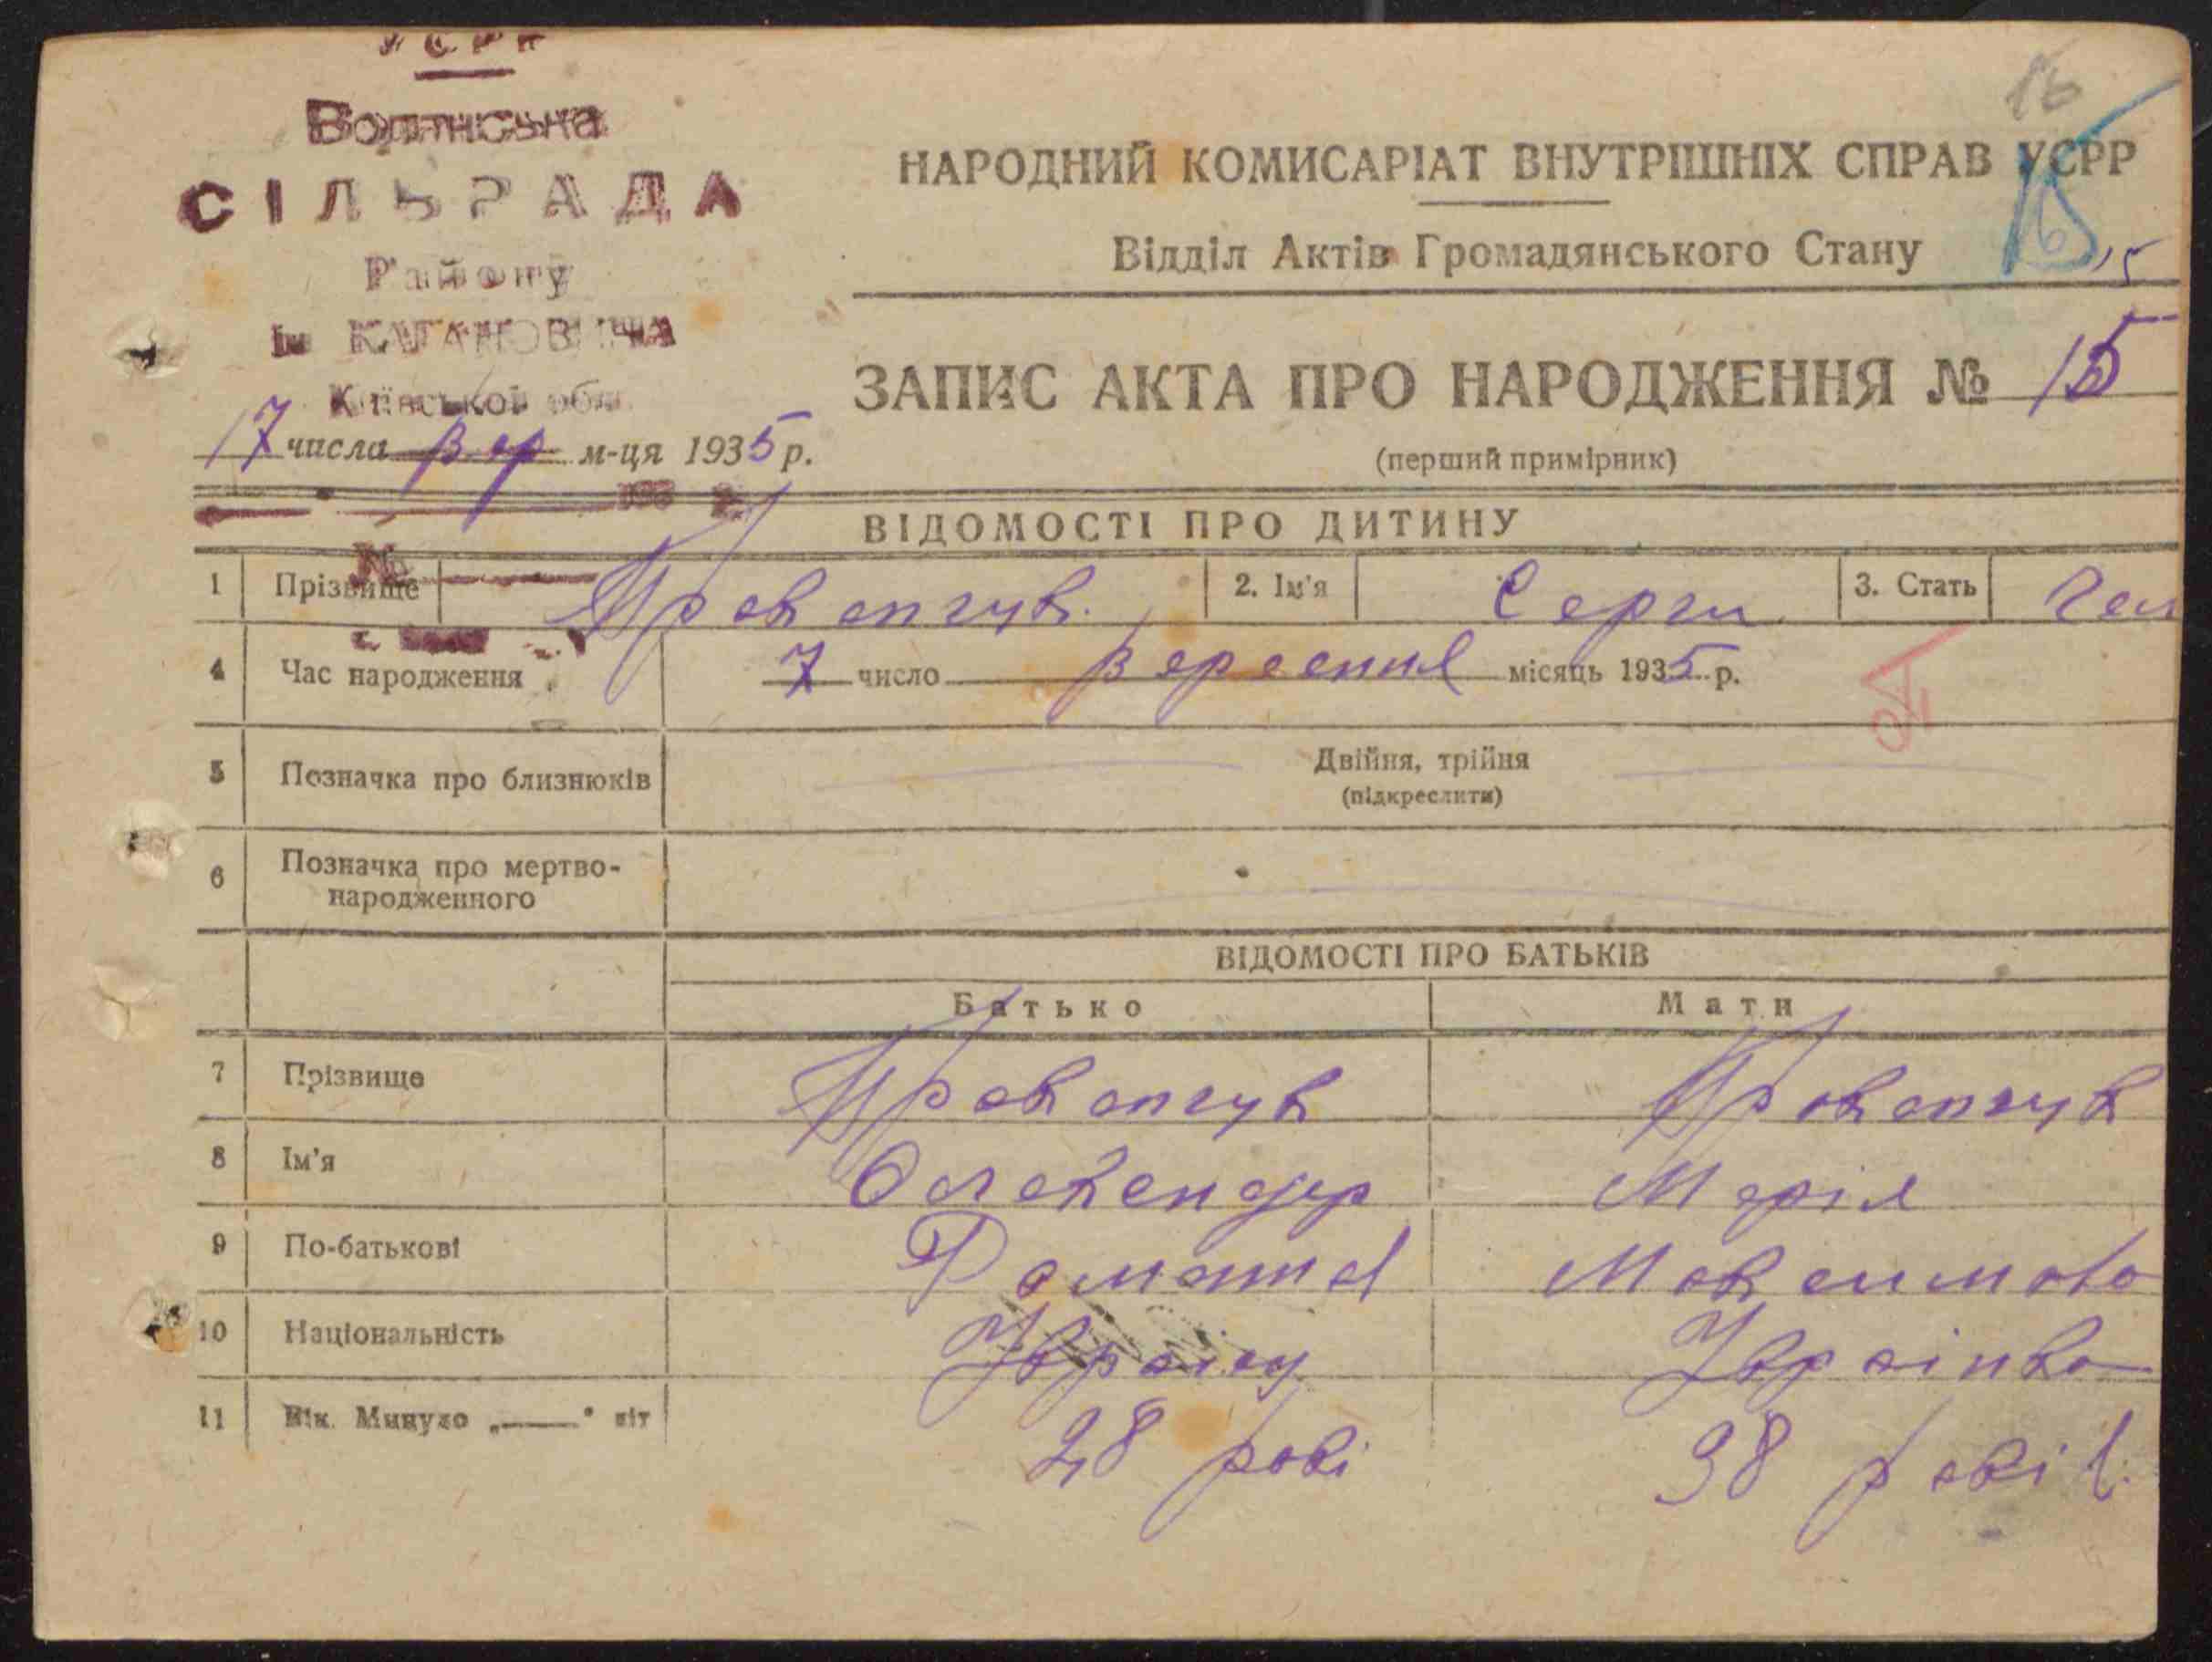 УСРР
СІЛЬРАДА
Району
ім КАГАНОВИЧА
Київської обл.
17 числа вер м-ця 1935 р.
16
15
НАРОДНИЙ КОМИСАРІАТ ВНУТРІШНІХ СПРАВ УСРР
Відділ Актів Громадянського Стану
ЗАПИС АКТА ПРО НАРОДЖЕННЯ № 15
(перший примірник)
ВІДОМОСТІ ПРО ДИТИНУ
1 Прізвище 2. Ім'я Серги 3. Стать Чол
№
4 Час народження 7 число вересння місяць 1935 р.
5 Позначка про близнюків Двійня, трійня
(підкреслити)
6 Позначка про мертво-
народженного
ВІДОМОСТІ ПРО БАТЬКІВ
Батько Мати
7 Прізвище
8 Ім'я Марія
9 По-батькові
10 Національність Українка
11 Вік. Минуло „——" літ 28 рокі 38 років